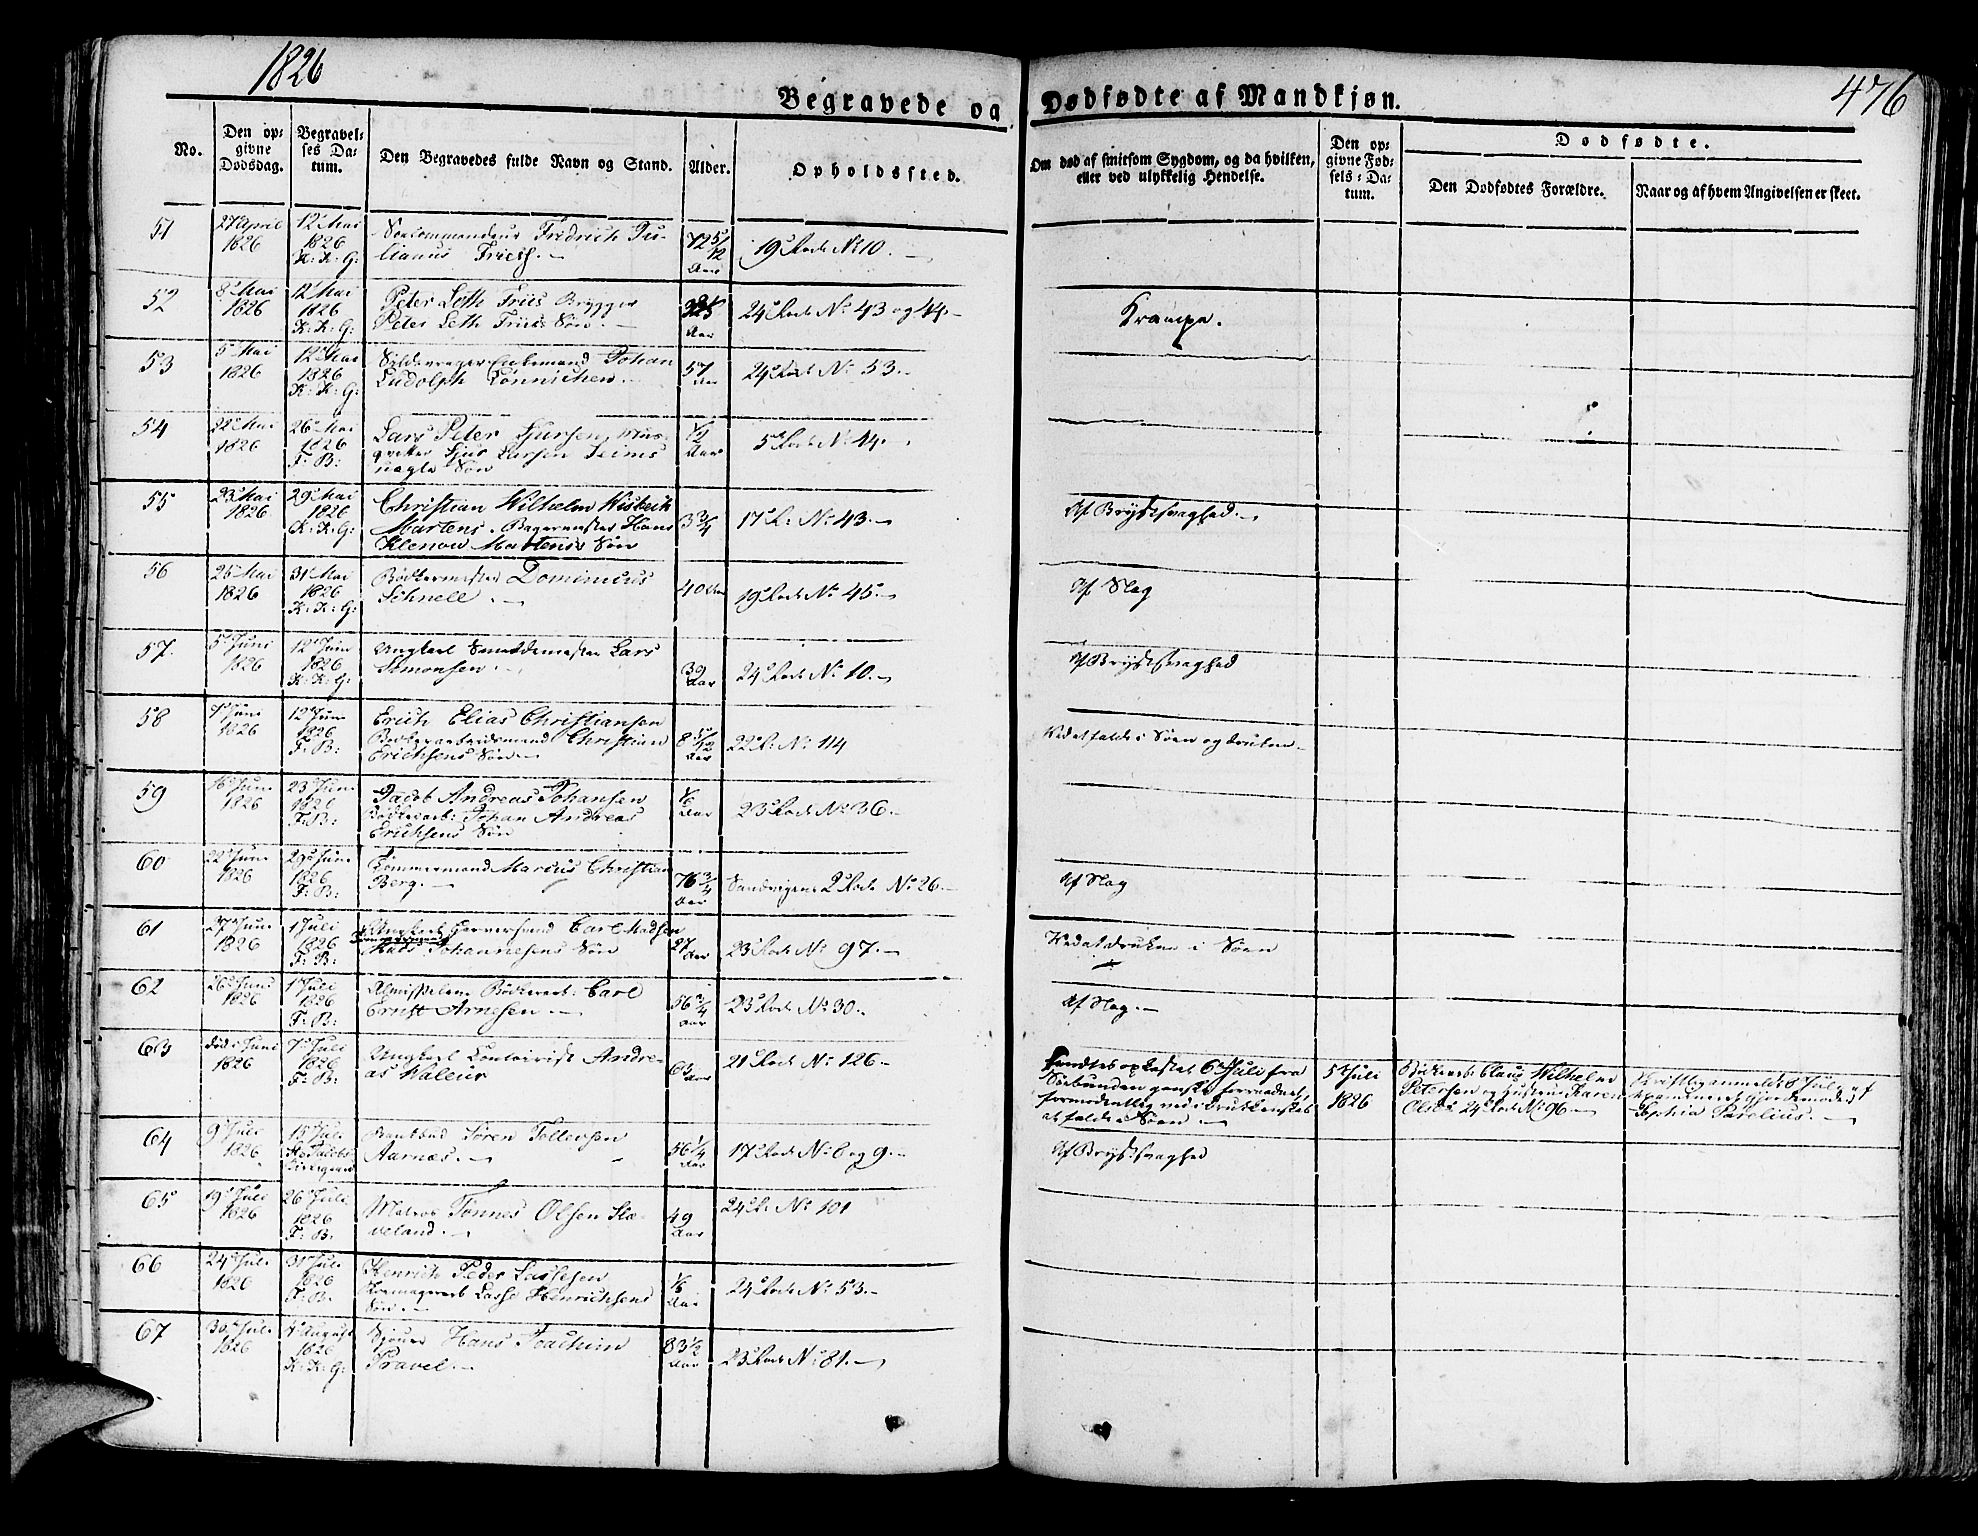 1826
476
Begravede og Dødfødte af Mandkjøn.
No.
Den opgivne Dødsdag.
Begravelses Datum.
Den Begravedes fulde Navn og Stand.
Alder.
Opholdssted.
Om død af smitsom Sygdom, og da hvilken, eller ved ulykkelig Hendelse.
Den opgivne Fødsels-Datum.
Dødfødte.
Den Dødfødtes Forældre.
Naar og af hvem Angivelsen er skeet.
51 27 April 1826 12 Mai 1826 K: K: G: Fridrich Julianus Friess.— 72 5/12 Aar 19de Rode No 10.—
52 8 Mai 1826 12 Mai 1826 K: K: G: Peter Leth Friis Brygger
Peter Leth Friis Søn.— Aar 24de Rode No 43 og 44.— Krampe.
53 5 Mai 1826 12 Mai 1826 K: K: G: Johan
Ludolph Tönnichen.— 57 Aar 24de Rode No 53.—
54 22 Mai 1826 26 Mai 1826 F: B: Lars Peter Sjursen Musqvetter Sjur Larsen Søn 1/2 Aar 5te Rode No 14.
55 23 Mai 1826 29 Mai 1826 K: K: G: Christian Wilhelm Wisbech
Martens. Bagermester Hans
Klenow Martens's Søn 3 3/4 17de R: No 43.— Af Brystsvaghed.—
56 25 Mai 1826 31 Mai 1826 K: K: G: Bødkermester Dominicus
Schnell.— 40 Aar 19de Rode No 45.— Af Slag
57. 5 Juni 1826 12 Juni 1826 K: K: G: Ungkarl Smeddemester Lars
Simonsen.— 39 Aar 24de Rode No 10.— Af Brystsvaghed
58 7 Juni 1826 12 Juni 1826 F: B: Erich Elias Christiansen
Bødkerarbeidsmand Christian
Erichsens Søn.— 8 5/12 Aar 22de R: No 114 Ved at falde i Søen og drukne.—
59 16 Juni 1826 23 Juni 1826 F: B: Jacob Andreas Johansen
Bødkerarb: Johan Andreas
Erichsens Søn 1/6 Aar 23de Rode No 36.—
60 22 Juni 1826 29 Juni 1826 F: B: Tømmermand Marcus Christian
Berg.— 76 3/4 Aar Sandvigens 2de Rode No 26.— Af Slag
61 27 Juni 1826 1 Juli 1826 F: B: Ungkarl Garversvend Carl Madsen
Mads Johannesens Søn 27 Aar 23de Rode No 97.— Ved at drukne i Søen
62 26 Juni 1826 1 Juli 1826 F: B: Almisselem Bødkerarb: Carl
Ernst Arnesen.— 56 3/4 Aar 23de Rode No 30.— Af Slag.—
63 død i Juni 1826 7 Juli 1826 F: B: Ungkarl Contoirist Andreas Waleur 63 Aar 21de Rode No 126.— fandtes opkastet 6te Juli fra
Søebunden ganske forraadnet,
formodentlig ved i Drukkenskab
at falde i Søen.—
5 Juli 1826
Bødkerarb: Claus Wilhelm
Petersen og Hustru Karen
Olsd: 24de Rode No 96.—
Sophia Parelius.—
64 9 Juli 1826 15 Juli St. Jacobs Kirkegaard Søren Tollevsen
Aarnæs.— 56 1/4 Aar 17de Rode No 6 og 9.— Af Brystsvaghed
65 19 Juli 1826 26 Juli 1826 F: B: Matros Tønnes Olsen Klæveland.— 49 Aar 24de R: No 101
66 24 Juli 1826 31 Juli 1826 F: B. Henrich Peder Lassesen
Lasse Henrichsens
Søn.— 1/6 Aar 24de Rode No 53.—
67 30 Juli 1826 4 August 1826 K: K: G: Hans Joachim
Pravel.— 83 1/2 Aar 23de Rode No 81.—